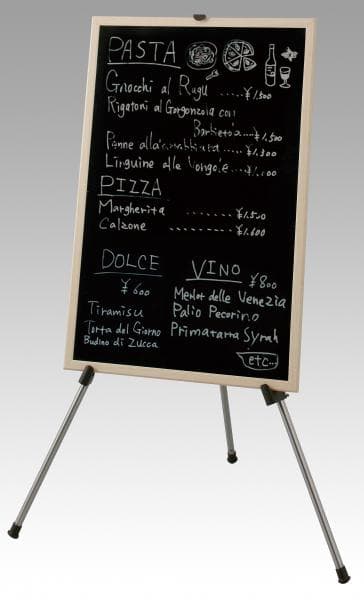 PASTA
Gnocchi al Rugu .....¥1,500
Rigatoni al Gorgonzola con
Barbietola....¥1,500
Penne all'arrabbiata ....¥1,300
Linguine alle Vongole....
PIZZA
Margherita ....... ¥1,500
Calzone .......... ¥1,600
DOLCE
¥600
Tiramisu
Torta del Giorno
Budino di Zucca
VINO
¥800
Merlot delle Venezia
Palio Pecorino
Primatarra Syrah
etc...